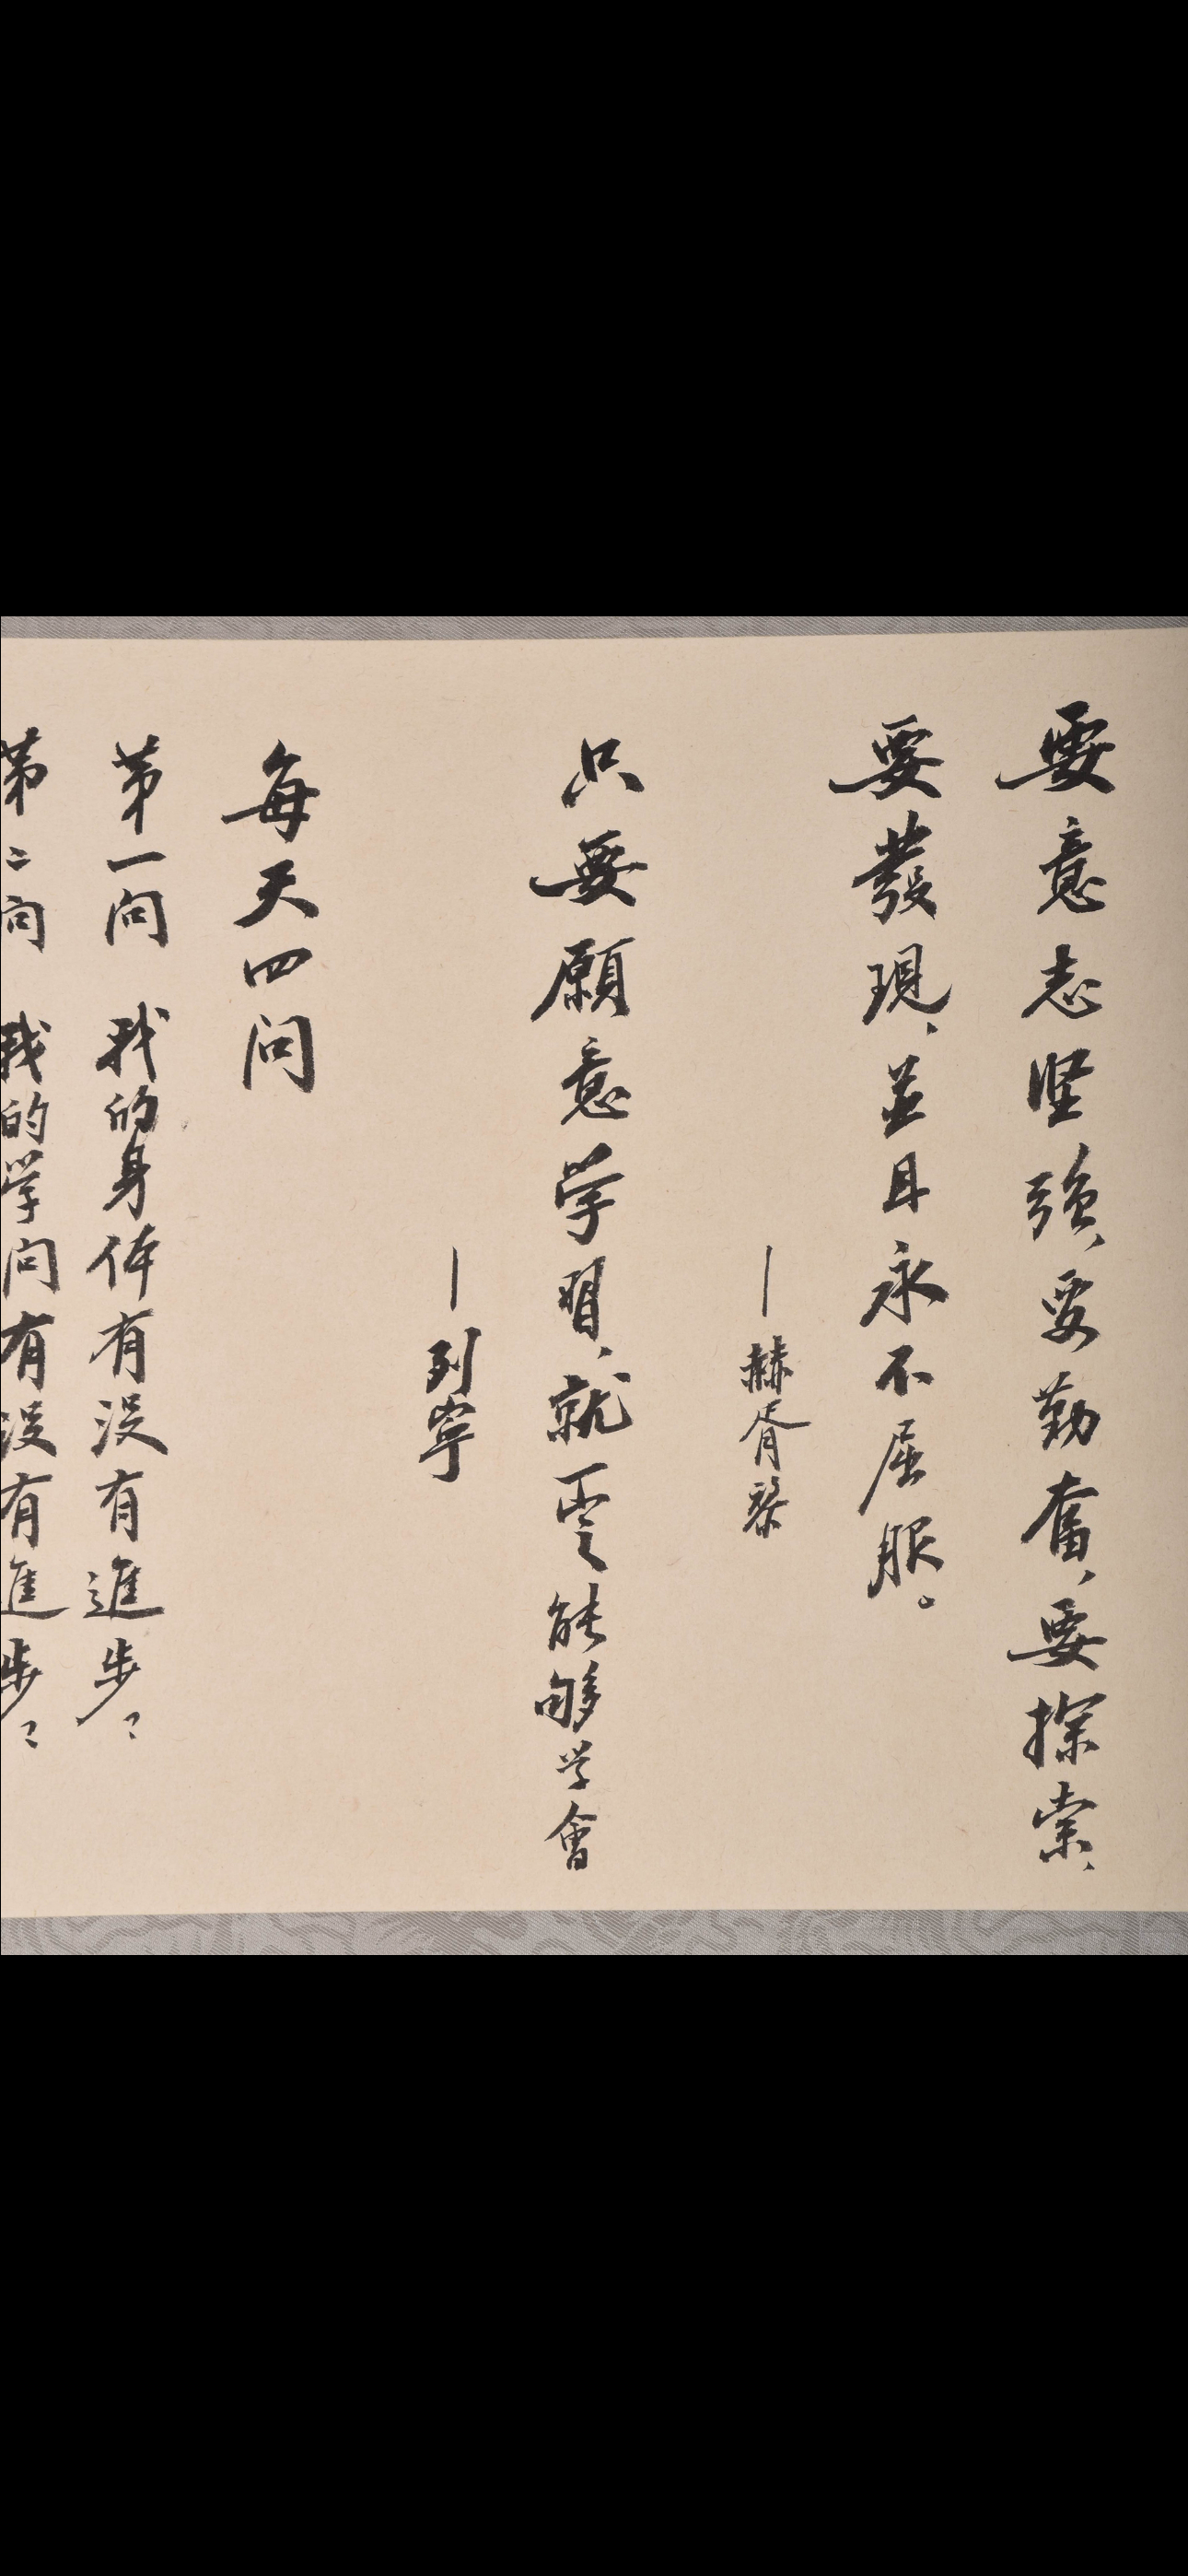 要意志坚強、要勤奮、要探索、
要發現、並且永不屈服。
—赫胥黎
只要願意学習、就一定能够学會
—列寧
每天四问
第一问 我的身体有没有進步？
第二问 我的学问有没有進步？